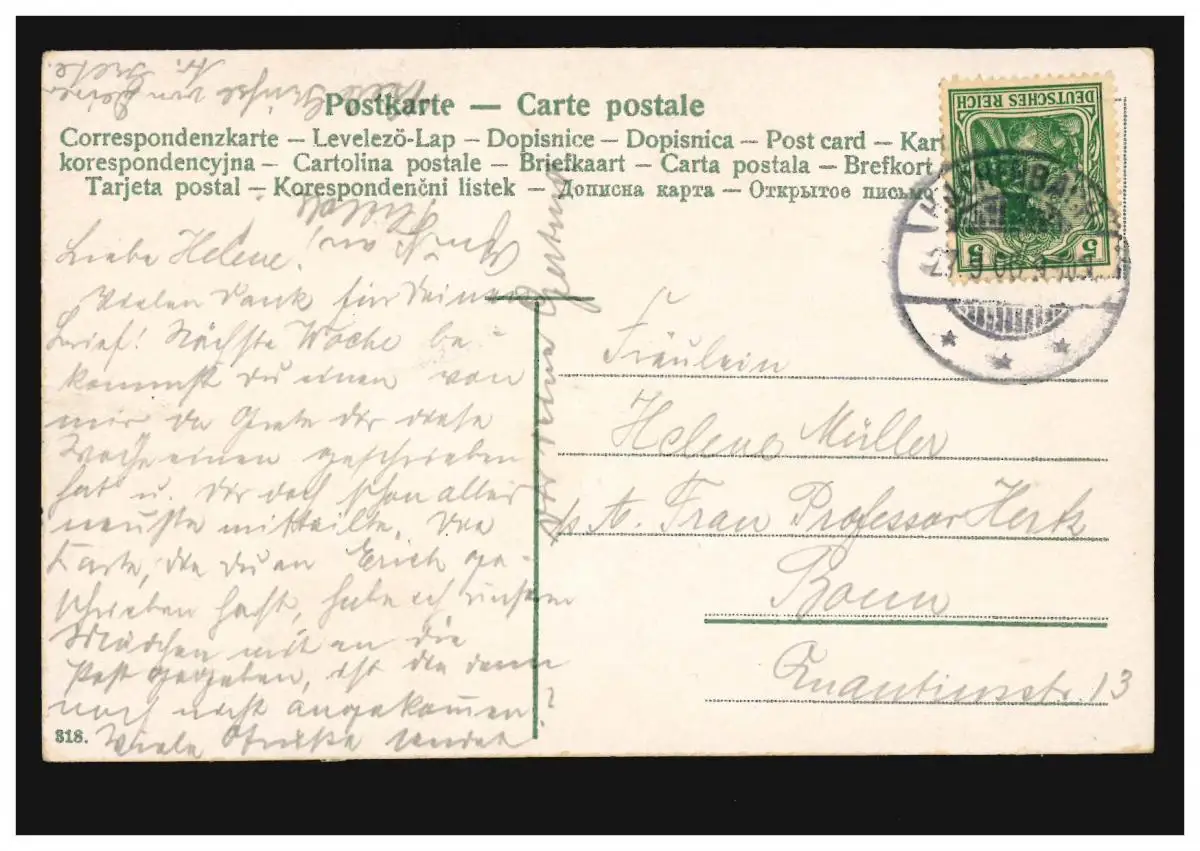 Postkarte — Carte postale
Correspondenzkarte – Levelezö-Lap – Dopisnice – Dopisnica – Post card – Kart
korespondencyjna – Cartolina postale – Briefkaart – Carta postala – Brefkort
Tarjeta postal – Korespondenčni listek – Дописна карта – Открытое письмо
DEUTSCHES REICH
5 5
27.9.06
Liebe Helene!
Vielen Dank für Deinen
Brief! Nächste Woche be-
kommst Du einen von
mir da Grete Dir diese
Woche einen geschrieben
hat u. Dir doch schon alles
neuste mitteilte. Die
Karte, die Du an Erich ge-
schrieben hast, habe ich unsern
Mädchen mit an die
Post gegeben, ist die denn
noch nicht angekommen?
Viele Grüße sendet
Fräulein
Helene Müller
Frau Professor Herk
Bonn
Quantiusstr. 13
318.